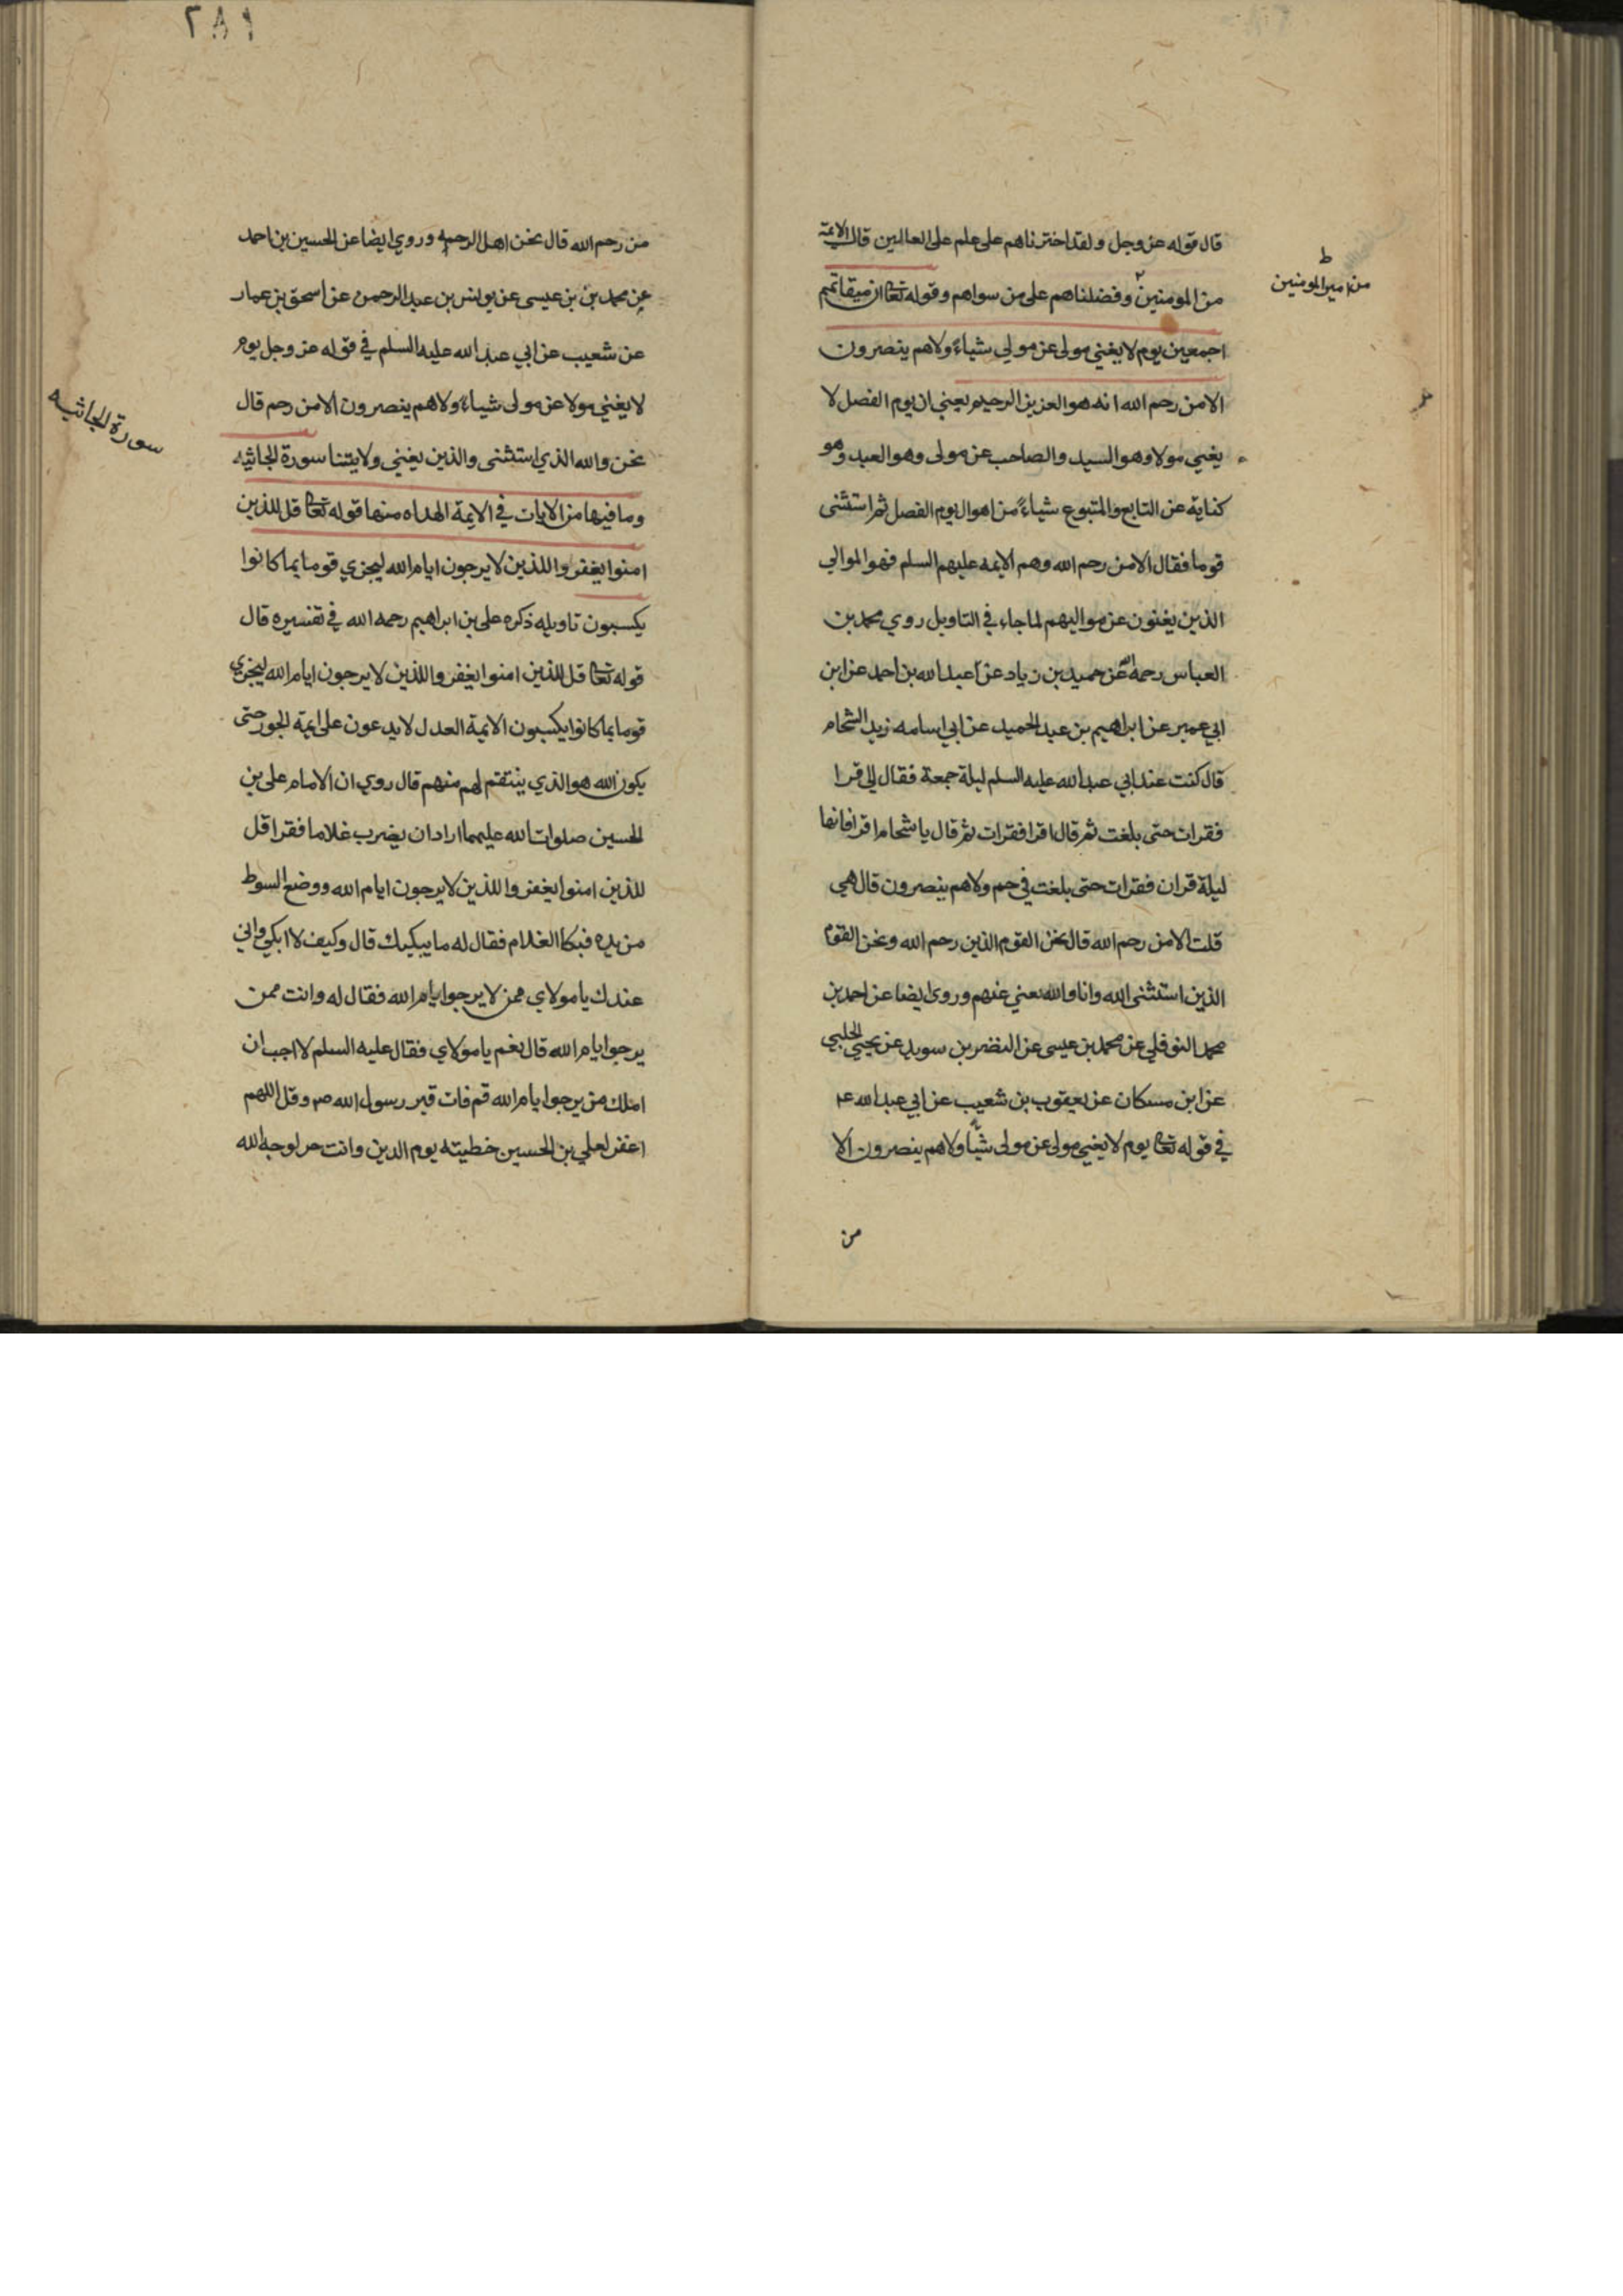 قال قوله عز وجل ولقد اخترناهم على علم على العالمين قال الائمة
من المومنين وفضلناهم على من سواهم وقوله تعا ان ميقاتهم
اجمعين يوم لا يغني مولى عن مولى شياءً ولا هم ينصرون
الا من رحم الله انه هو العزيز الرحيم يعني ان يوم الفصل لا
يغني مولا وهو السيد والصاحب عن مولى وهو العبد وهو
كناية عن التابع والمتبوع شياءً من اهوال يوم الفصل ثم استثنى
قوما فقال الا من رحم الله وهم الايمه عليهم السلم فهو الموالي
الذين يغنون عن مواليهم لما جاء في التاويل روي محمد بن
العباس رحمه الله عن حميد بن زياد عن اعبد الله بن احمد عن ابن
ابي عمير عن ابراهيم بن عبد الحميد عن ابي اسامه زيد الشحام
قال كنت عند ابي عبد الله عليه السلم ليلة جمعة فقال الى اقرا
فقرات حتى بلغت ثم قال اقرا فقرات ثم قال يا شحام اقرا فانها
ليلة قران فقرات حتى بلغت في حم ولا هم ينصرون قال هي
قلت الا من رحم الله قال نحن القوم الذين رحم الله ونحن القوم
الذين استثنى الله وانا والله نعني عنهم وروى ايضا عن احمد بن
محمد النوفلي عن محمد بن عيسى عن النضر بن سويد عن يحيى الحلبي
عن ابن مسكان عن يعقوب بن شعيب عن ابي عبد الله ع
في قوله تعا يوم لا يغني مولى عن مولى شيا ولا هم ينصرون الا
من
ط
من امير المومنين
٢٨١
من رحم الله قال نحن اهل الرحمه وروي ايضا عن الحسين بن احمد
عن محمد بن بن عيسى عن يونس بن عبد الرحمن عن اسحق بن عمار
عن شعيب عن ابي عبد الله عليه السلم في قوله عز وجل يوم
لا يغني مولا عن مولى شياءً ولا هم ينصرون الا من رحم قال
نحن والله الذي استثنى والذين يغني ولايتنا سورة الجاثيه
وما فيها من الايات في الايمة الهداه منها قوله تعا قل للذين
امنوا يغفروا للذين لا يرجون ايام الله ليجزي قوما بما كانوا
يكسبون تاويله ذكره على بن ابراهيم رحمه الله في تفسيره قال
قوله تعا قل للذين امنوا يغفروا للذين لا يرجون ايام الله ليجزي
قوما بما كانوا يكسبون الايمة العدل لا يدعون على ايمة الجور حتى
يكون الله هو الذي ينتقم لهم منهم قال روي ان الامام على بن
الحسين صلوات الله عليهما اراد ان يضرب غلاما فقرا قل
للذين امنوا يغفروا للذين لا يرجون ايام الله ووضع السوط
من يده فبكا الغلام فقال له ما يبكيك قال وكيف لا ابكي واني
عندك يا مولاي ممن لا يرجوا ايام الله فقال له وانت ممن
يرجوا ايام الله قال نعم يا مولاي فقال عليه السلم لا احب ان
املك من يرجوا ايام الله قم فات قبر رسول الله ص وقل اللهم
اغفر لعلي بن الحسين خطيته يوم الدين وانت حر لوجه الله
سورة الجاثيه